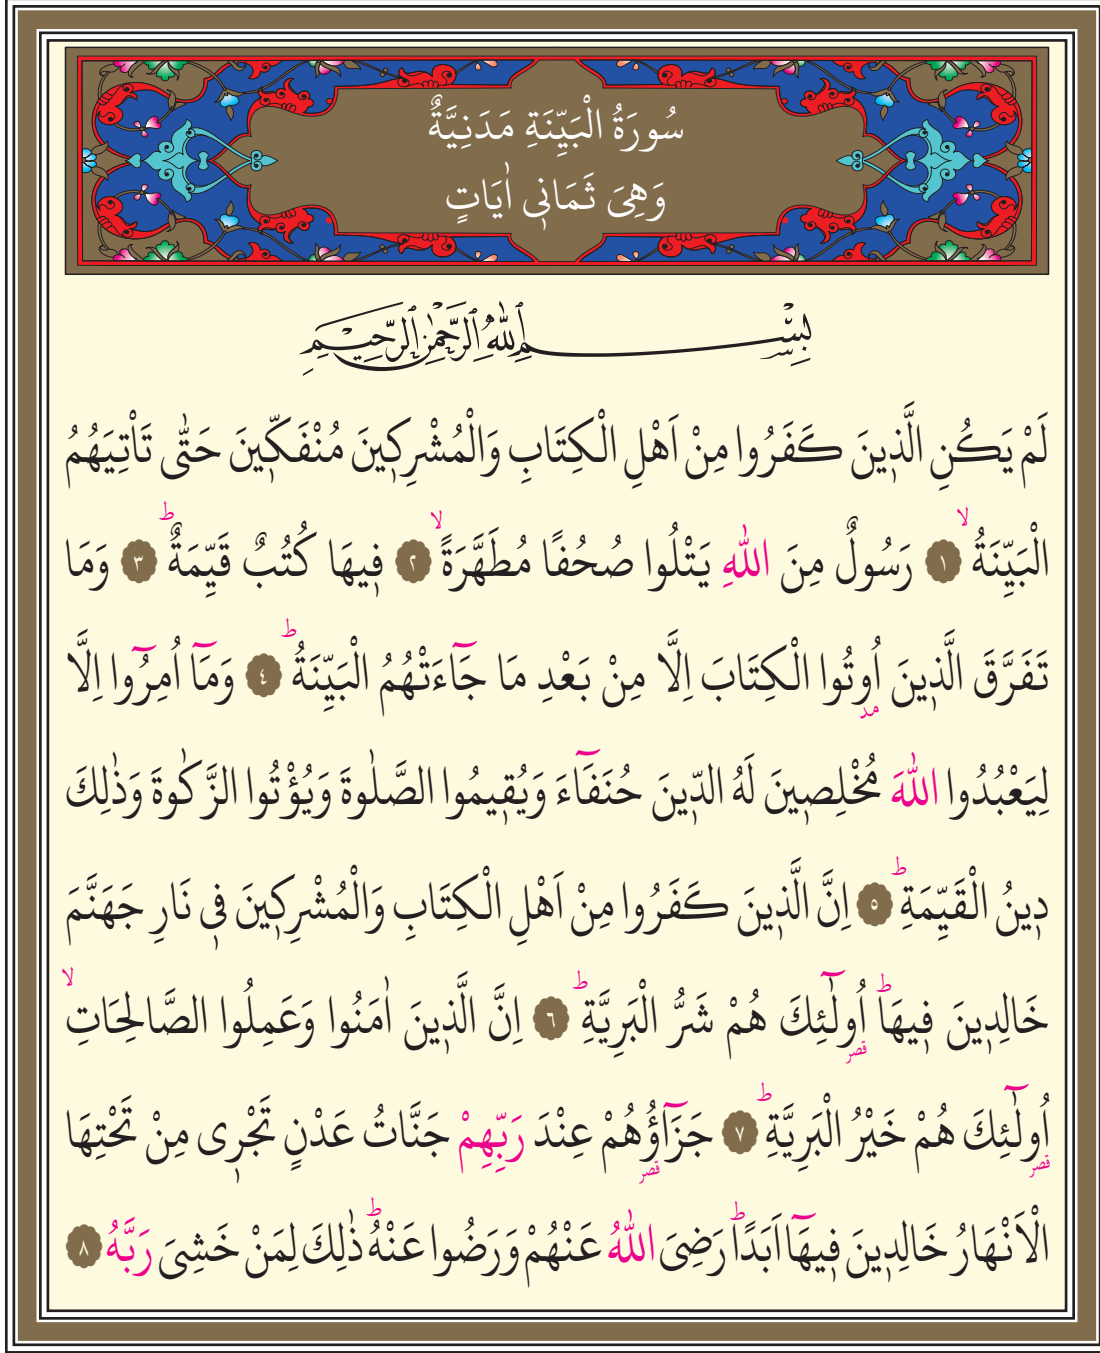 سُورَةُ الْبَيِّنَةِ مَدَنِيَّةٌ
وَهِيَ ثَمَانٖي اٰيَاتٍ
بِسْمِ اللّٰهِ الرَّحْمٰنِ الرَّحِيمِ
لَمْ يَكُنِ الَّذٖينَ كَفَرُوا مِنْ اَهْلِ الْكِتَابِ وَالْمُشْرِكٖينَ مُنْفَكّٖينَ حَتّٰى تَأْتِيَهُمُ
الْبَيِّنَةُۙ ١ رَسُولٌ مِنَ اللّٰهِ يَتْلُوا صُحُفًا مُطَهَّرَةًۙ ٢ فٖيهَا كُتُبٌ قَيِّمَةٌؕ ٣ وَمَا
تَفَرَّقَ الَّذٖينَ اُوتُوا الْكِتَابَ اِلَّا مِنْ بَعْدِ مَا جَٓاءَتْهُمُ الْبَيِّنَةُؕ ٤ وَمَٓا اُمِرُٓوا اِلَّا
مد
لِيَعْبُدُوا اللّٰهَ مُخْلِصٖينَ لَهُ الدّٖينَ حُنَفَٓاءَ وَيُقٖيمُوا الصَّلٰوةَ وَيُؤْتُوا الزَّكٰوةَ وَذٰلِكَ
دٖينُ الْقَيِّمَةِؕ ٥ اِنَّ الَّذٖينَ كَفَرُوا مِنْ اَهْلِ الْكِتَابِ وَالْمُشْرِكٖينَ فٖي نَارِ جَهَنَّمَ
خَالِدٖينَ فٖيهَاؕ اُولٰٓئِكَ هُمْ شَرُّ الْبَرِيَّةِؕ ٦ اِنَّ الَّذٖينَ اٰمَنُوا وَعَمِلُوا الصَّالِحَاتِۙ
قصر
اُولٰٓئِكَ هُمْ خَيْرُ الْبَرِيَّةِؕ ٧ جَزَٓاؤُهُمْ عِنْدَ رَبِّهِمْ جَنَّاتُ عَدْنٍ تَجْرٖي مِنْ تَحْتِهَا
قصر قصر
الْاَنْهَارُ خَالِدٖينَ فٖيهَٓا اَبَدًاؕ رَضِيَ اللّٰهُ عَنْهُمْ وَرَضُوا عَنْهُؕ ذٰلِكَ لِمَنْ خَشِيَ رَبَّهُ ٨